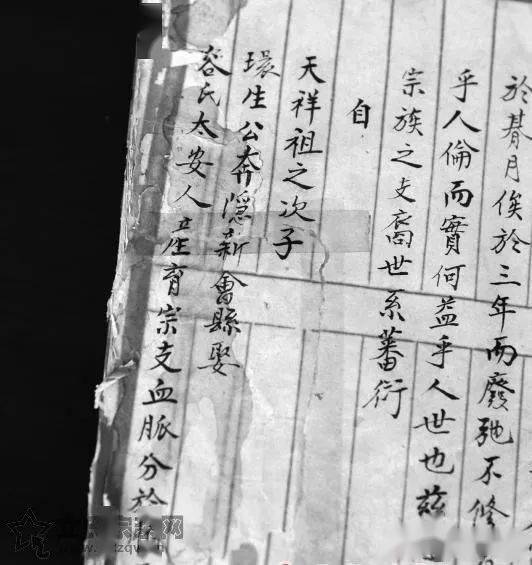 於朞月俟於三年而廢弛不修
乎人倫而實何益乎人世也茲
宗族之支裔世系蕃衍
自
天祥祖之次子
環生公奔隱新會縣娶
容氏太安人產育宗支血脈分於